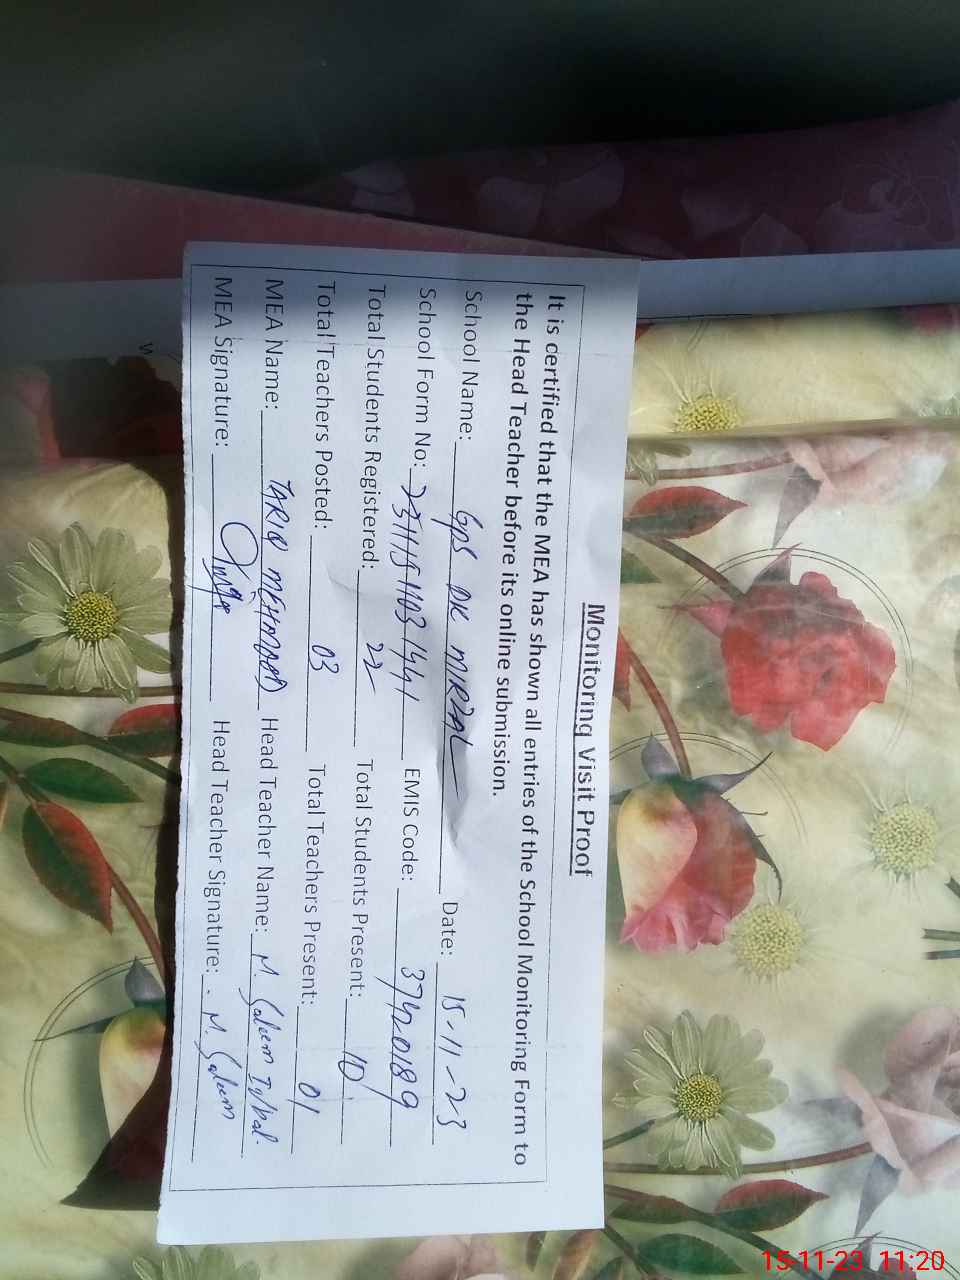 Monitoring Visit Proof
It is certified that the MEA has shown all entries of the School Monitoring Form to
the Head Teacher before its online submission.
School Name: GPS DK MRZAL Date: 15-11-23
School Form No: 231115110314441 EMIS Code: 37420189
Total Students Registered: 22 Total Students Present: 10
Total Teachers Posted: 03 Total Teachers Present: 01
MEA Name: TARIQ MEHMOOD Head Teacher Name: M. Saleem Iqbal.
MEA Signature: Head Teacher Signature: M. Saleem
15-11-23 11:20